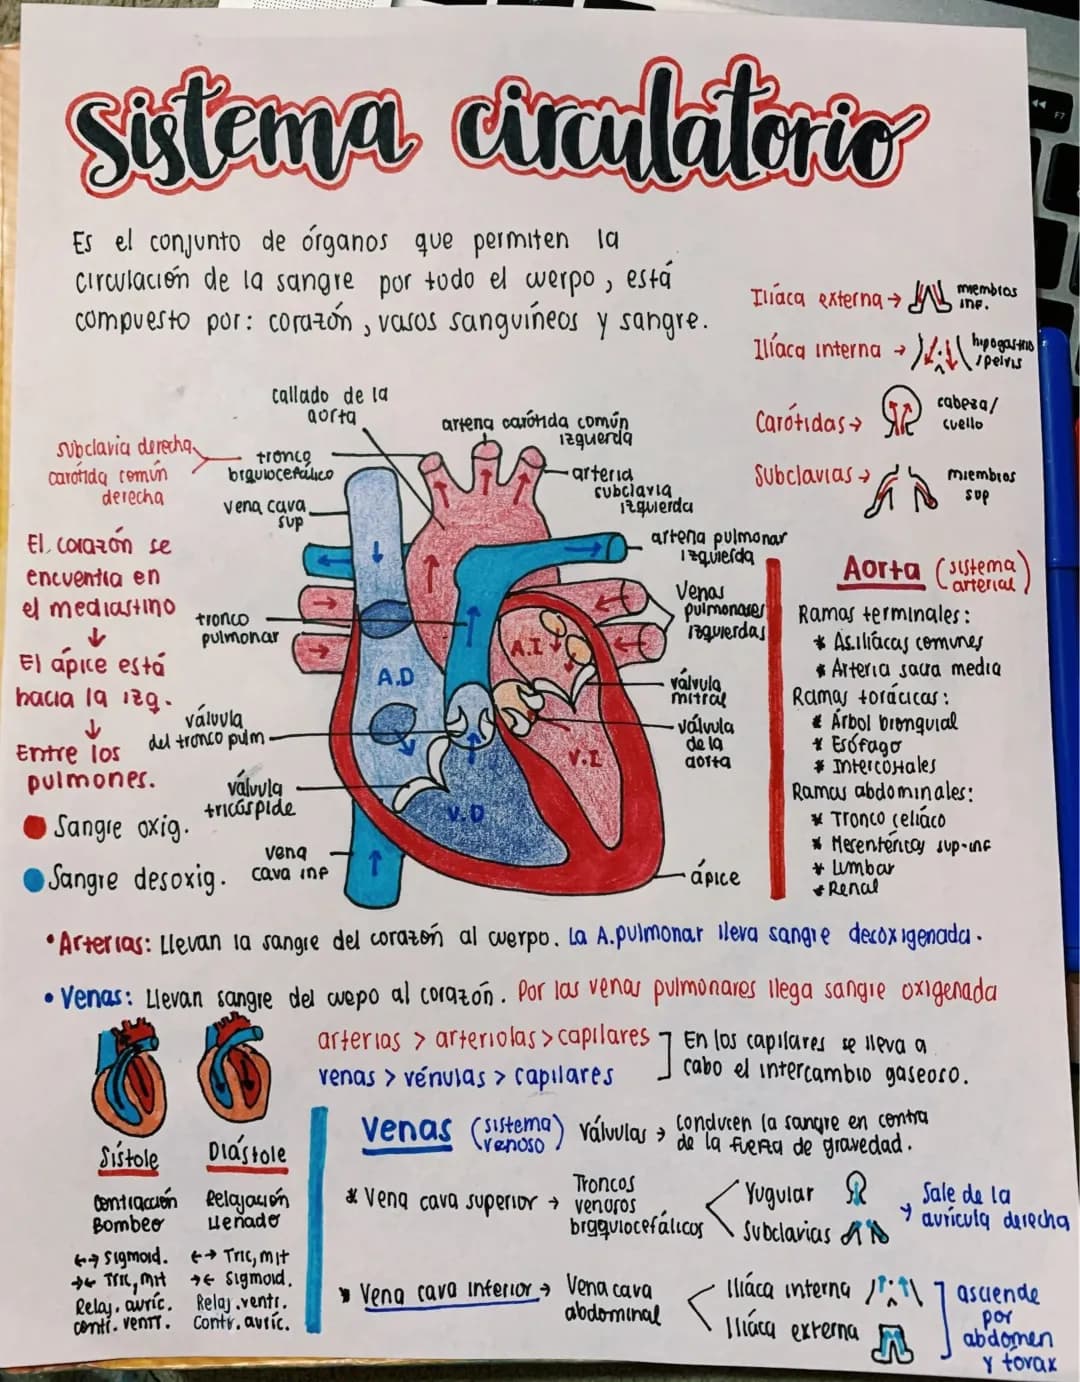 sistema circulatorio
Es el conjunto de órganos que permiten la
circulación de la sangre por todo el cuerpo, está
compuesto por: corazón, vasos sanguíneos y sangre.
Ilíaca externa → miembros
inf.
Ilíaca interna → hipogastrio
/pelvis
Carótidas → cabeza/
cuello
Subclavias → miembros
sup
callado de la
aorta
arteria carótida común
izquierda
subclavia derecha
carótida común
derecha
tronco
brquiocefálico
arteria
subclavia
izquierda
vena cava
sup
arteria pulmonar
izquierda
El corazón se
encuentra en
el mediastino
↓
El ápice está
hacia la izq.
↓
Entre los
pulmones.
Venas
pulmonares
izquierdas
tronco
pulmonar
A.I
A.D
válvula
mitral
válvula
del tronco pulm
válvula
de la
aorta
V.I
válvula
tricúspide
V.D
Sangre oxig.
vena
cava inf
Sangre desoxig.
ápice
Aorta (sistema
arterial)
Ramas terminales:
* As.ilíacas comunes
* Arteria sacra media
Ramas torácicas:
* Árbol bronquial
* Esófago
* Intercostales
Ramas abdominales:
* Tronco celíaco
* Mesentéricas sup-inf
* Lumbar
* Renal
• Arterias: Llevan la sangre del corazón al cuerpo. La A.pulmonar lleva sangre decoxigenada.
• Venas: Llevan sangre del cuepo al corazón. Por las venas pulmonares llega sangre oxigenada
arterias > arteriolas > capilares
venas > vénulas > capilares
En los capilares se lleva a
cabo el intercambio gaseoso.
Sístole
Contracción
Bombeo
←→ Sigmoid.
→← Tric, mit
Relaj. auríc.
contr. ventr.
Diástole
Relajación
Llenado
←→ Tric, mit
→← Sigmoid.
Relaj. ventr.
Contr. auríc.
Venas (sistema
venoso) Válvulas → conducen la sangre en contra
de la fuerza de gravedad.
* Vena cava superior → Troncos
venosos
braquiocefálicos
Yugular
Subclavias
→ Sale de la
aurícula derecha
* Vena cava inferior → Vena cava
abdominal
Ilíaca interna
Ilíaca externa
asciende
por
abdomen
y tórax
F7